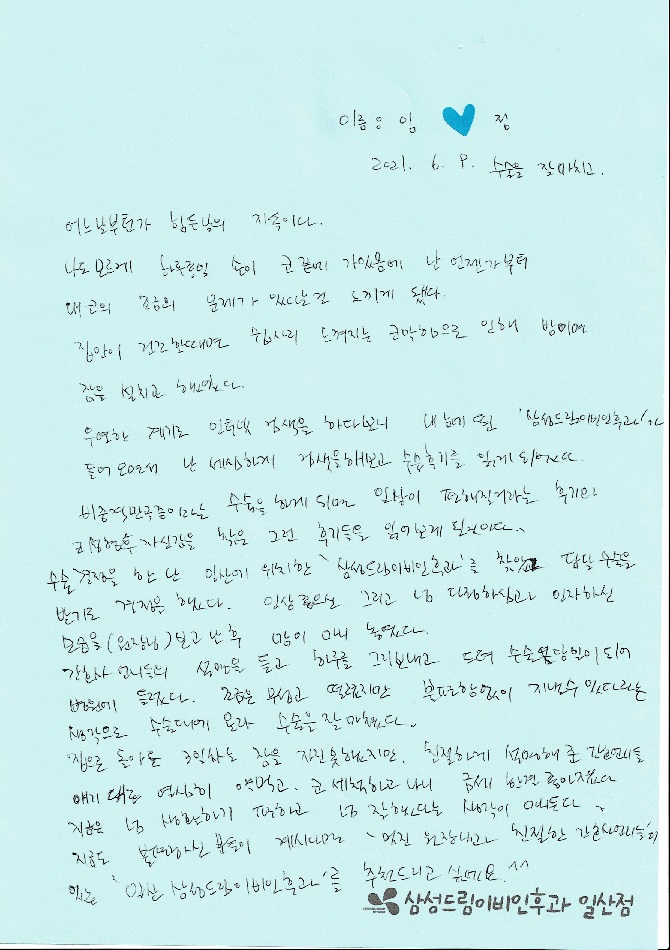 이름 : 임 점
2021. 6. 9. 수술을 잘 마치고.
어느날부턴가 힘든날의 지속이다.
나도모르게 하루종일 손이 코 끝에 가있음에 난 언젠가부터
내 코의 조금의 문제가 있다는걸 느끼게 됐다.
집안이 건조할때면 쉽사리 느껴지는 코막힘으로 인해 밤이면
잠을 설치곤 해었다.
우연한 계기로 인터넷 검색을 하다보니 내 눈에 띈 '삼성드림이비인후과'가
들어 오면서 난 세심하게 검색을해보고 수술후기를 읽게 되었다.
비중격만곡증이라는 수술을 하게 되면 일상이 편해질거라는 후기와
코성형후 자신감을 찾은 그런 후기들을 읽어보게 된것이다.
수술 결정을 한 난 일산에 위치한 '삼성드림이비인후과'를 찾았고 담당 수술을
받기로 결정을 했다. 인상 좋으신 그리고 넘 다정하심과 인자하신
모습을 (원장님) 보고 난 후 맘이 마니 놓였다.
간호사 언니들의 설명을 듣고 하루를 그리보내고 드뎌 수술 당일이 되어
병원에 들렀다. 조금은 무섭고 떨렸지만 불편함없이 지낼수 있다라는
생각으로 수술대에 올라 수술을 잘 마쳤다.
집으로 돌아온 3일차도 잠을 자진 못했지만, 친절하게 설명해 준 간호언니들
얘기 대로 열심히 약먹고, 코 세척하고 나니 금세 한결 좋아졌다
지금은 넘 생활하기 편하고 넘 잘했다는 생각이 마니든다.
지금도 불편하신 분들이 계시다면 '멋진 원장님과 친절한 간호사언니들'이
있는 '일산 삼성드림이비인후과'를 추천드리고 싶네요.^^
삼성드림이비인후과 일산점